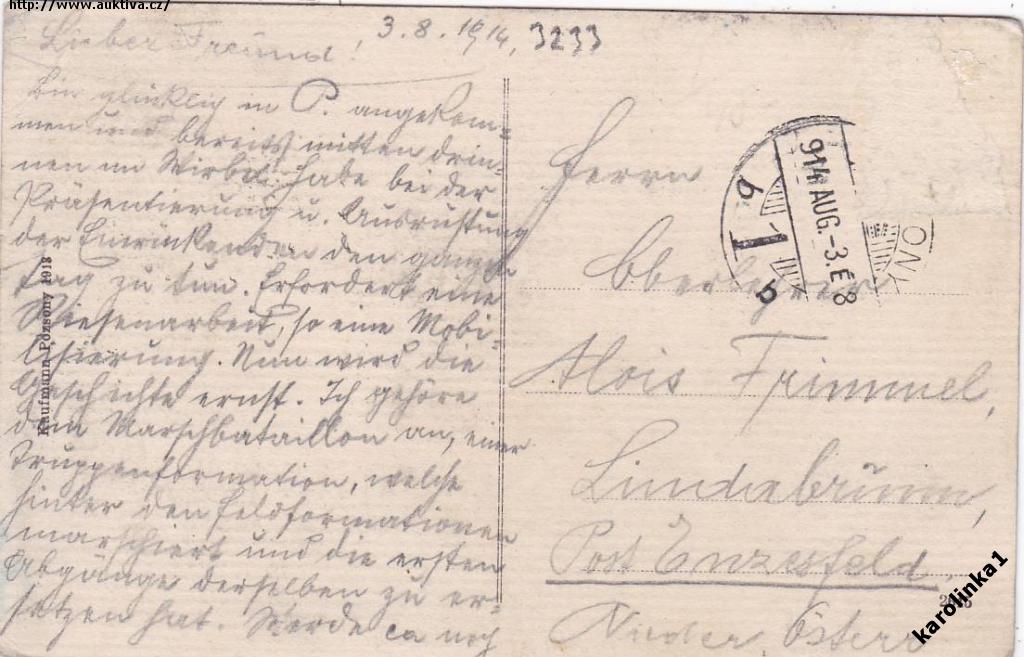 http://www.auktiva.cz/
3.8.1914, 3233
Lieber Freund!
Bin glücklig in P. angekom-
men und bereits mitten drin-
nen im Wirbel. Habe bei der
Präsentierung u. Ausrüstung
der Einrückenden den ganzen
Tag zu tun. Erfordert eine
Riesenarbeit, so eine Mobi-
lisierung. Nun wird die
Geschichte ernst. Ich gehöre
dem Marschbataillon an, einer
Truppenformation, welche
hinter den Feldformationen
marschiert und die ersten
Abgänge derselben zu er-
setzen hat. Werde ca noch
Kaufmann Pozsony 1913
914 AUG.-3.E 8
NY
Herrn
Oberlehrer
Alois Frimmel,
Lindabrunn,
Post Enzesfeld
Nieder Österr
karolinka1